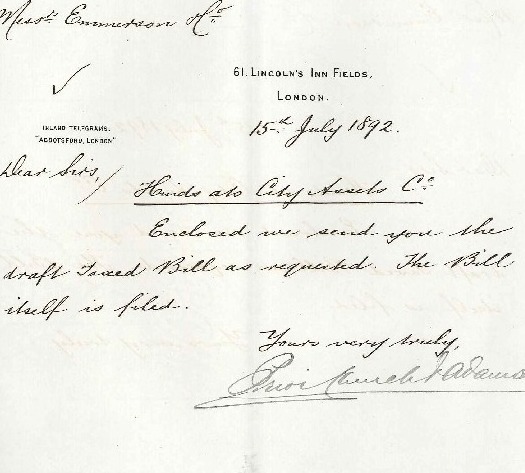 Messrs Emmerson & Co
61, LINCOLN'S INN FIELDS,
LONDON.
15th July 1892.
INLAND TELEGRAMS.
"ABBOTSFORD, LONDON"
Dear Sirs,
Hinds ats City Assets Co
Enclosed we send you the
draft Taxed Bill as requested. The Bill
itself is filed.
Yours very truly,
Prior Church & Adams